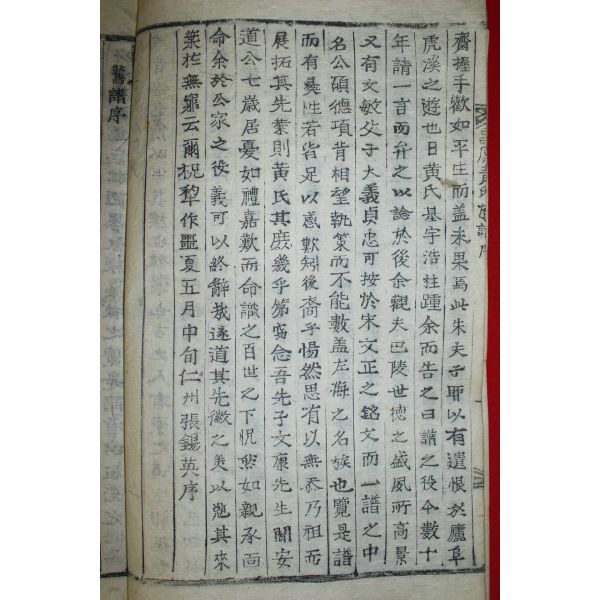 齋握手歡如平生而盖未果焉此朱夫子耶以有遺恨於廬阜
虎溪之遊也日黄氏基宇浩柱踵余而告之曰譜之役今數十
年請一言而弁之以諭於後余觀夫巴陵世德之盛風所高景
又有文敏父子大義貞忠可按於宋文正之銘文而一譜之中
名公碩德項背相望執策而不能數盖左海之名族也覽是譜
而有彝性若皆足以感歎矧後裔乎惕然思有以無忝乃祖而
展拓其先業則黄氏其庶幾乎第窃念吾先子文康先生聞安
道公七歲居憂如禮嘉歎而命識之百世之下怳然如親承面
命余於公家之役義可以終辭哉遂道其先徽之美以勉其來
葉於無窮云爾柷犂作噩夏五月中旬仁州張錫英序
舊譜序